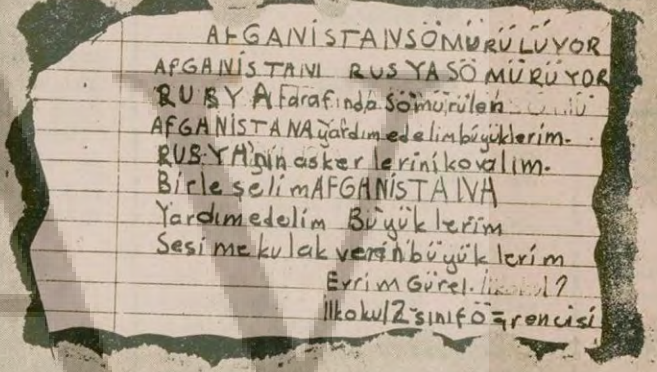 AFGANİSTANSÖMÜRÜLÜYOR
AFGANİSTANI RUSYASÖMÜRÜYOR
RUSYA tarafında sömürülen
AFGHANİSTANA yardım edelim büyüklerim.
RUSYA'nin askerlerini kovalim.
Birleşelim AFGHANİSTANA
Yardım edelim Büyüklerim
Sesime kulak verin büyüklerim
Evrim Gürel.
İlkokul 2 sınıf Öğrencisi